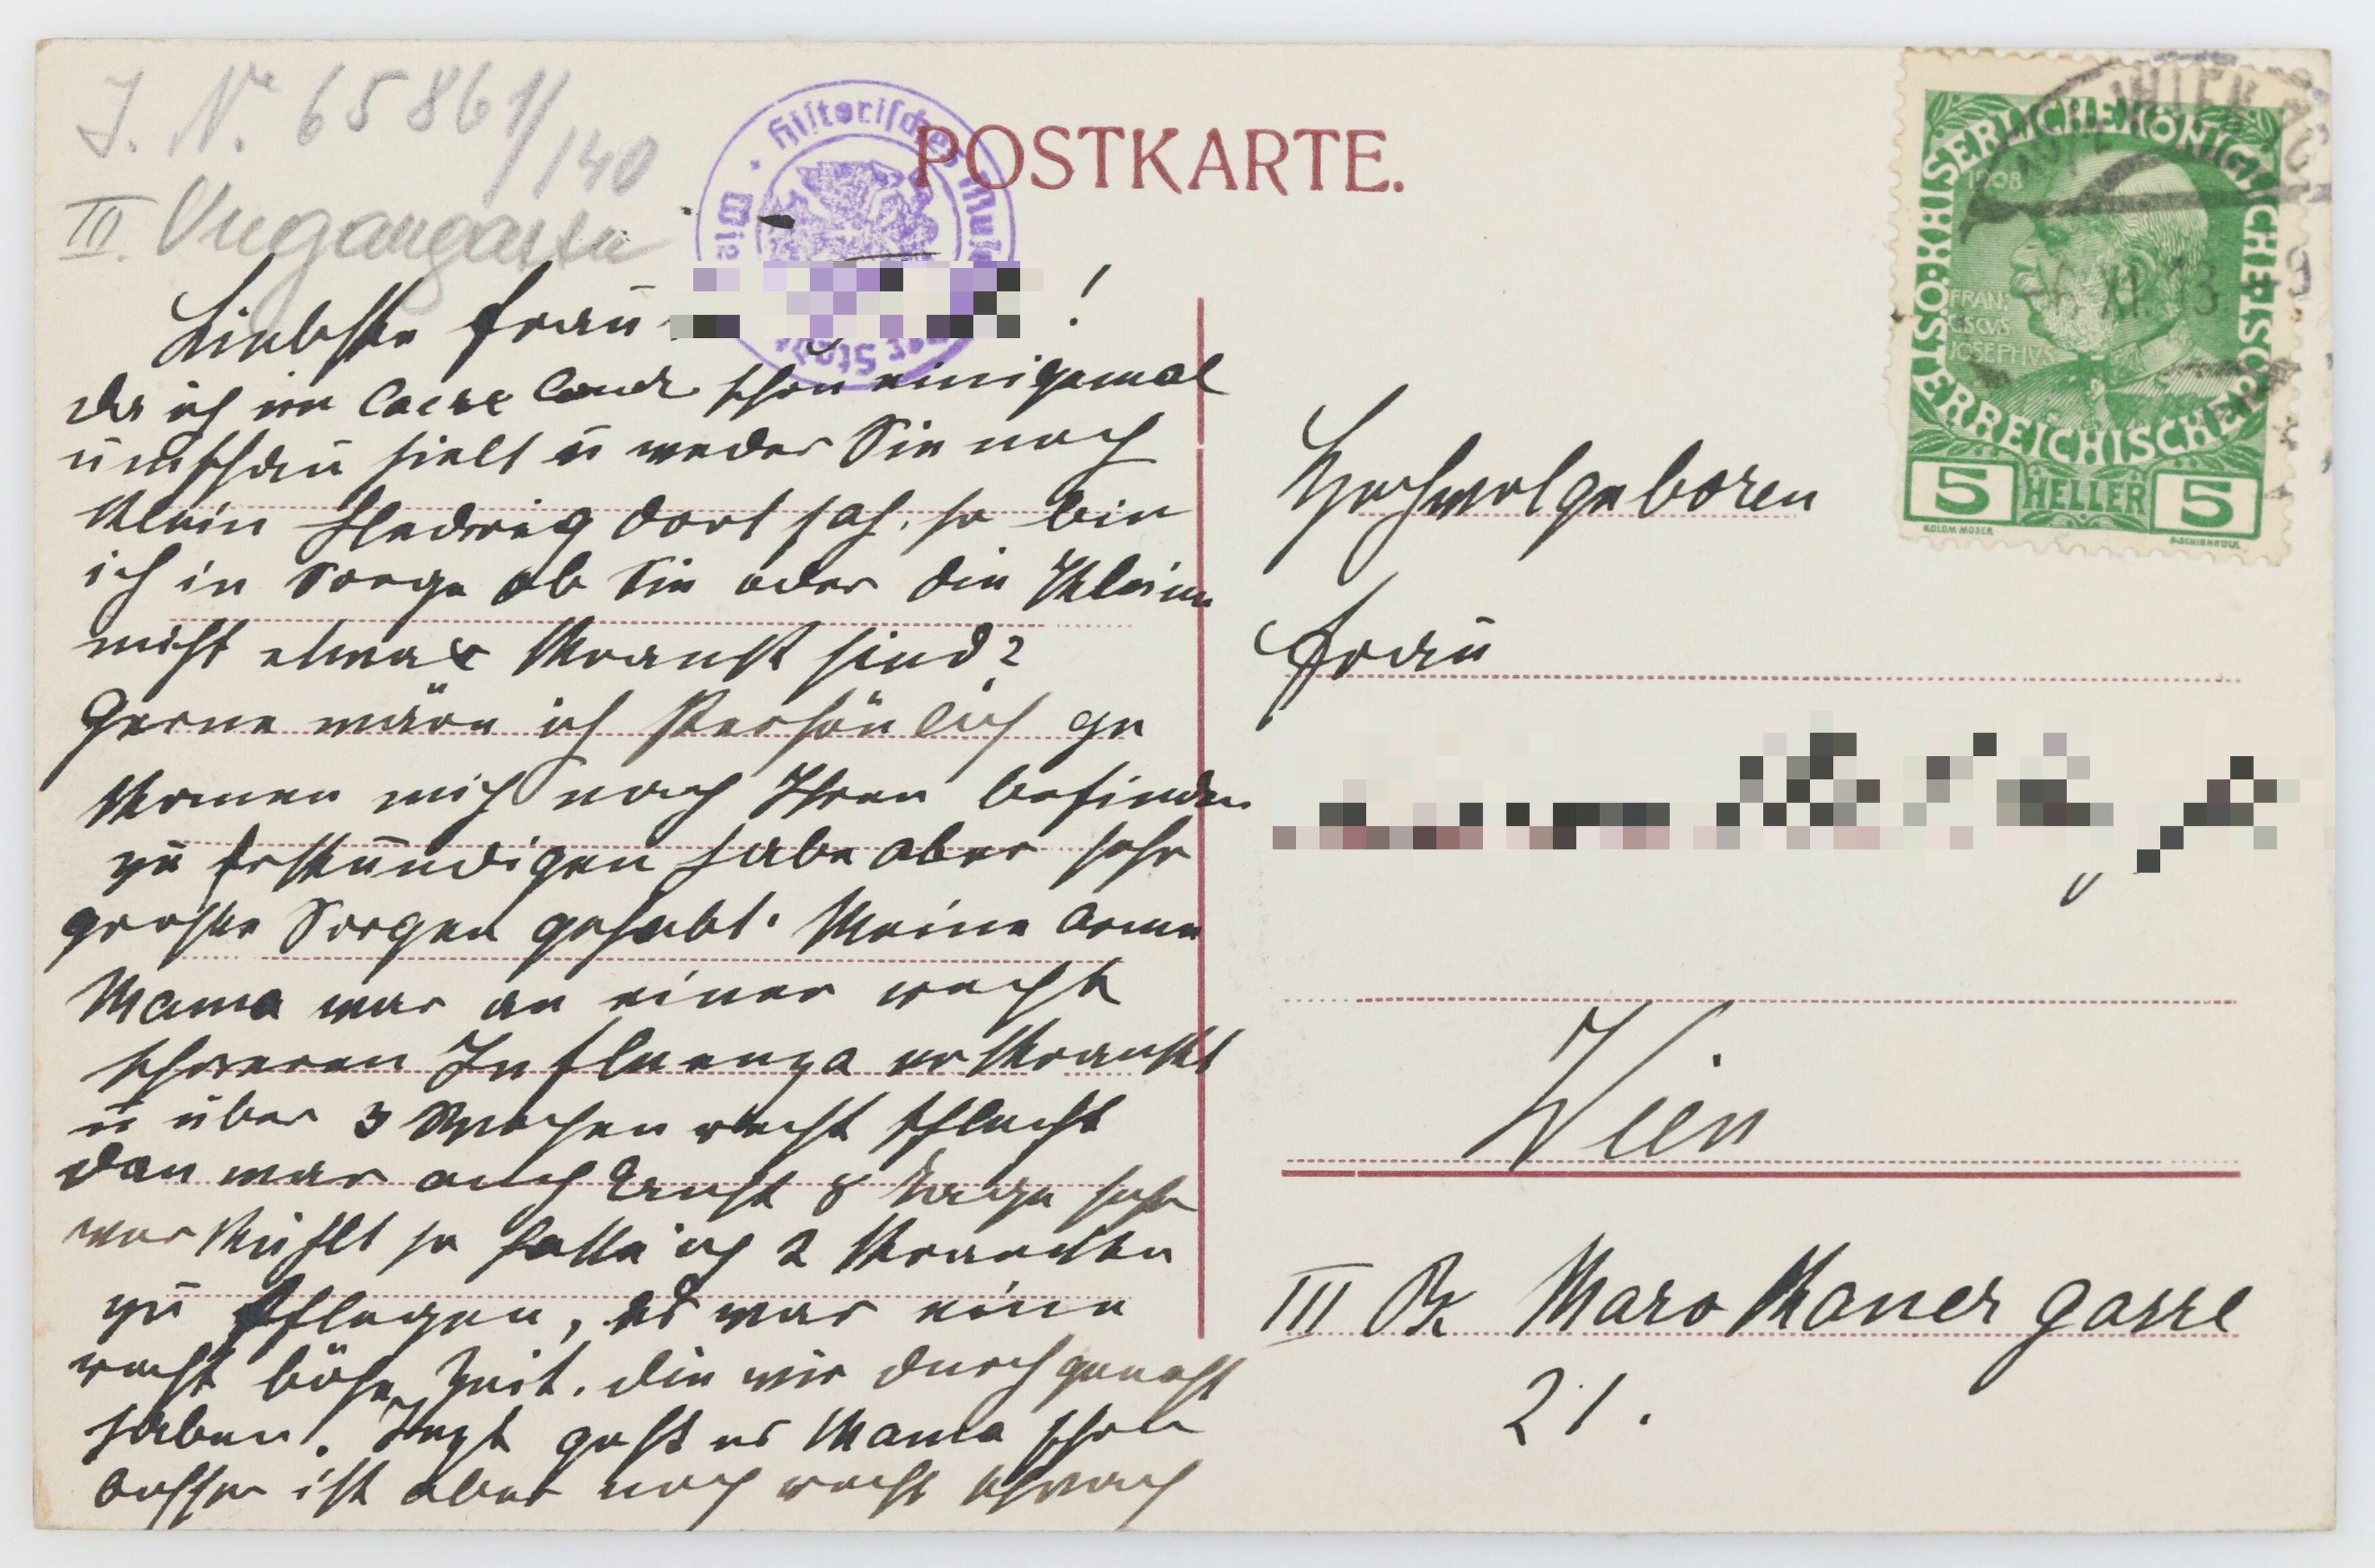 J. N. 65861/140
III. Ungargasse
Historisches Museum
Wiener Stadt
POSTKARTE.
KAISERLICHE KÖNIGLICHE ÖSTERREICHISCHE
1908
FRAN:
CISCVS
JOSEPHVS
5 HELLER 5
KOLOM·MOSER
F·SCHIRNBÖCK
WIEN
6. XI. 13
Liebste Frau !
da ich im schon einigemal
umschau hielt u weder Sie noch
Klein Hedwig dort sah. so bin
ich in Sorge ob Sie oder die Kleine
nicht etwas Krank sind?
Gerne wäre ich Persönlich ge
komen mich nach Ihren befinden
zu Erkundigen habe aber sehr
große Sorgen gehabt. Meine arme
Mama war an einer recht
schweren Influenza erkrankt
u über 3 Wochen recht schlecht
dan war auch Ernst 8 Tage sehr
verkühlt so hatte ich 2 Kranke
zu Pflegen, es war eine
recht böse Zeit. die wir durchgemacht
haben. Jezt geht es Mama schon
besser ist aber noch recht schwach
Hochwolgeboren
Frau
Wien
III Bz Marokkaner gasse
21.